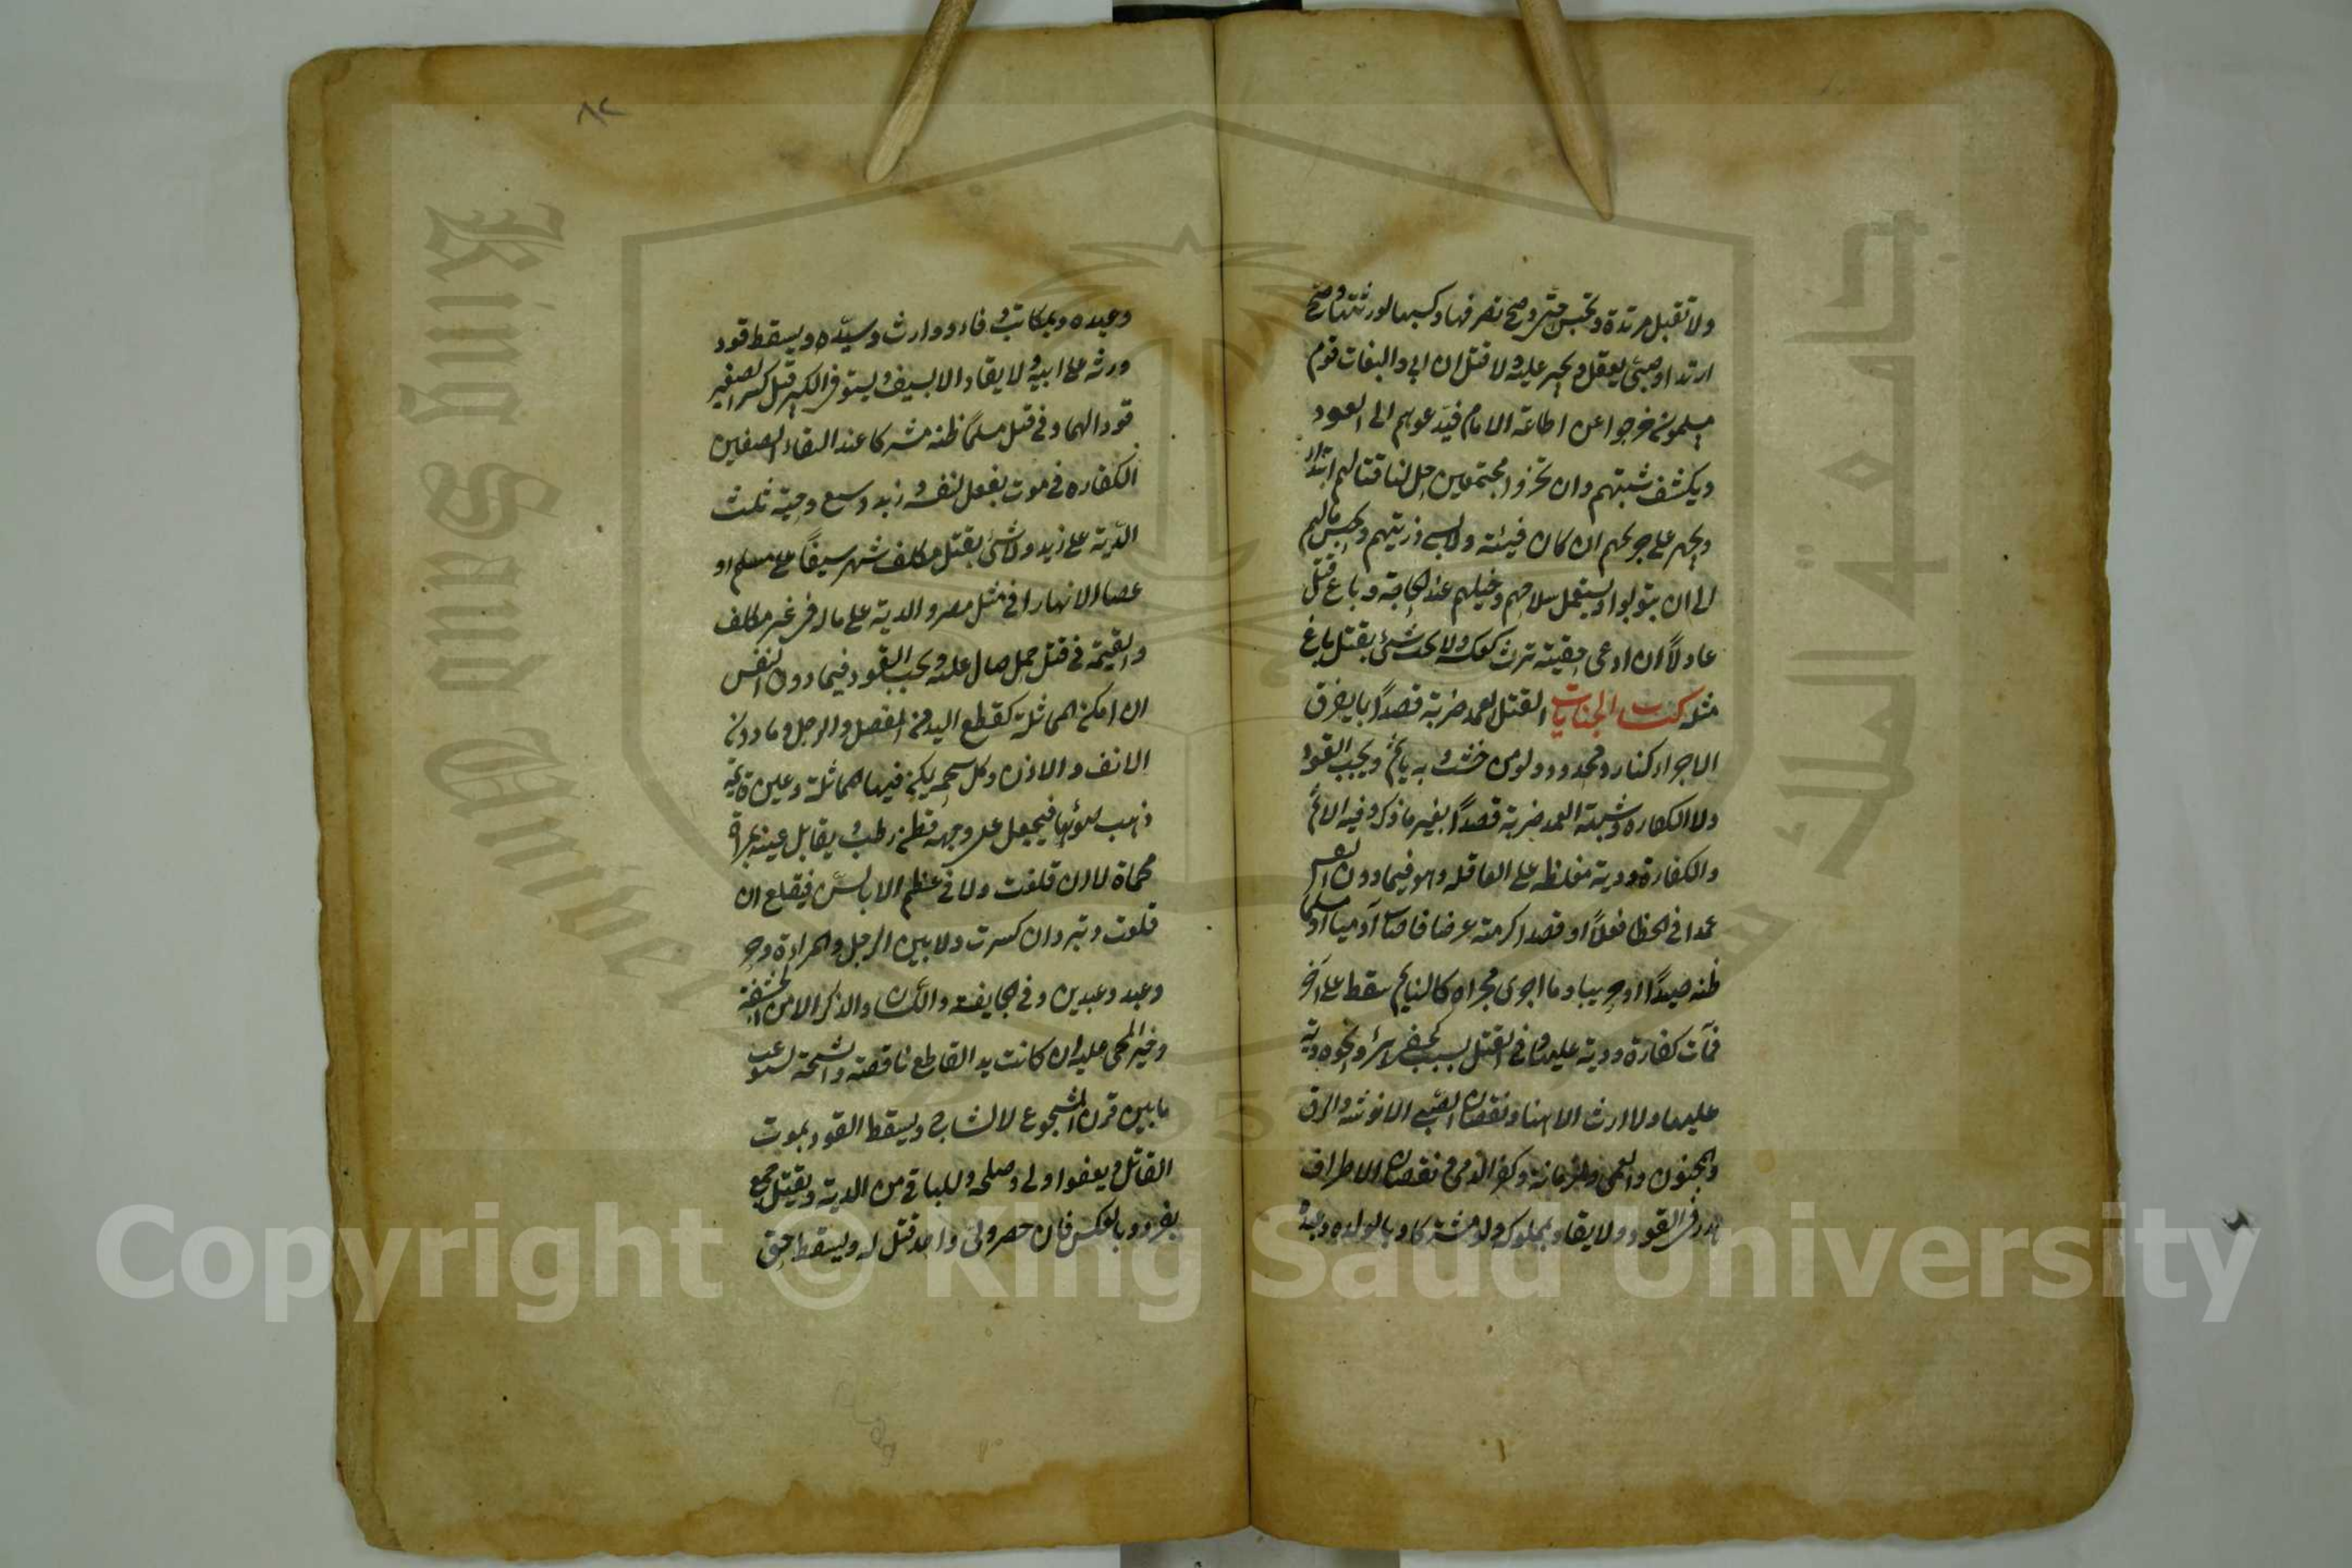 ولا تقبل مرتدة وتحبس حتى وصح تصرفها وكسبها لورثتها وصح
ارتداد صبي يعقل ويجبر عليه ولا قتل ان ابى والبغات قوم
مسلمون خرجوا عن اطاعة الامام فيدعوهم الى العود
ويكشف شبهتهم وان تحزوا مجتمعين حل لنا قتالهم ابتداء
ويجهز على جريحهم ان كان فيئة ولا يسبى ذريتهم ويحبس مالهم
الى ان يتوبوا ويستعمل سلاحهم وخيلهم عند الحاجة وباغ قتل
عادلاً ان ادعى حقيته يرث كعكسه ولا يجب شئ بقتل باغ
مثله كتاب الجنايات القتل العمد ضربة قصداً بما يفرق
الاجزاء كنار ومحدد ولو من خشب وبه ياثم ويجب القود
ولا الكفارة وشبهة العمد ضربة قصداً بغير ما ذكر وفيه الاثم
والكفارة ودية مغلظة على العاقلة وهو فيما دون النفس
عمدا في الخطا فعلاً او قصدا كرمته عرضا فاصاب آدميا او مسلما
ظنه صيداً او حربيا وما اجرى مجراه كالنايم سقط على آخر
فمات كفارة ودية عليها وفي القتل بسبب كحفر البئر ونحوه دية
عليها ولا ارث الا هنا ونقصان الصبي الانوثة والرق
والجنون والعمى والزمانة وكفر الذمى ونقصان الاطراف
هدر في القود ولا يقاد بمملوك ولو مشتركا وبالولده وعبده
٨٢
وعبده وبمكاتب وفاء ووارث وسيده ويسقط قود
ورثه على ابيه ولا يقاد الا بسيف ويستوفى الكبير قبل كبر الصغير
قودا لهما وفي قتل مسلماً ظنه مشركا عند التقاء الصفين
الكفارة وفي موت بفعل نفسه وزيد وسبع وحية ثلث
الدية على زيد ولا شئ بقتل مكلف شهر سيفاً على مسلم او
عصا الا نهارا في مثل مصر والدية على ماله في غير مكلف
والقيمة في قتل جمل صال عليه ويجب القود فيما دون النفس
ان امكن المماثلة كقطع اليد من المفصل والرجل وما دونه
الانف والاذن وكل شجة يمكن فيها المماثلة وعين قائمة
ذهب ضوئها فيجعل على وجهه قطن رطب ويقابل عينه بمرآة
محماة لا ان قلعت ولا في عظم الا بالسن فيقلع ان
قلعت وتبرد ان كسرت ولا بين الرجل والمراة وحر
وعبد وعبدين وفي الجايفة واللسان والذكر الا من الحشفة
وخير المجنى عليه ان كانت يد القاطع ناقصة والشجة تستوعب
ما بين قرن المشجوج لا الشاج ويسقط القود بموت
القاتل وبعفو اولى وصلحه وللباقى من الدية ويقتل جمع
بفرد وبالعكس فان حصر ولى واحد قتل له ويسقط حق
Copyright © King Saud University
King Saud University
1957